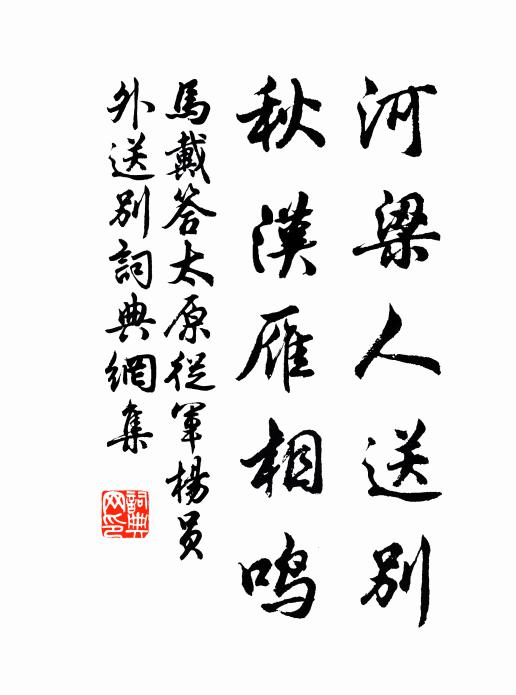 河梁人送别
秋漢雁相鸣
馬戴答太原従軍楊员
外送别詞典網集
詞典
网印